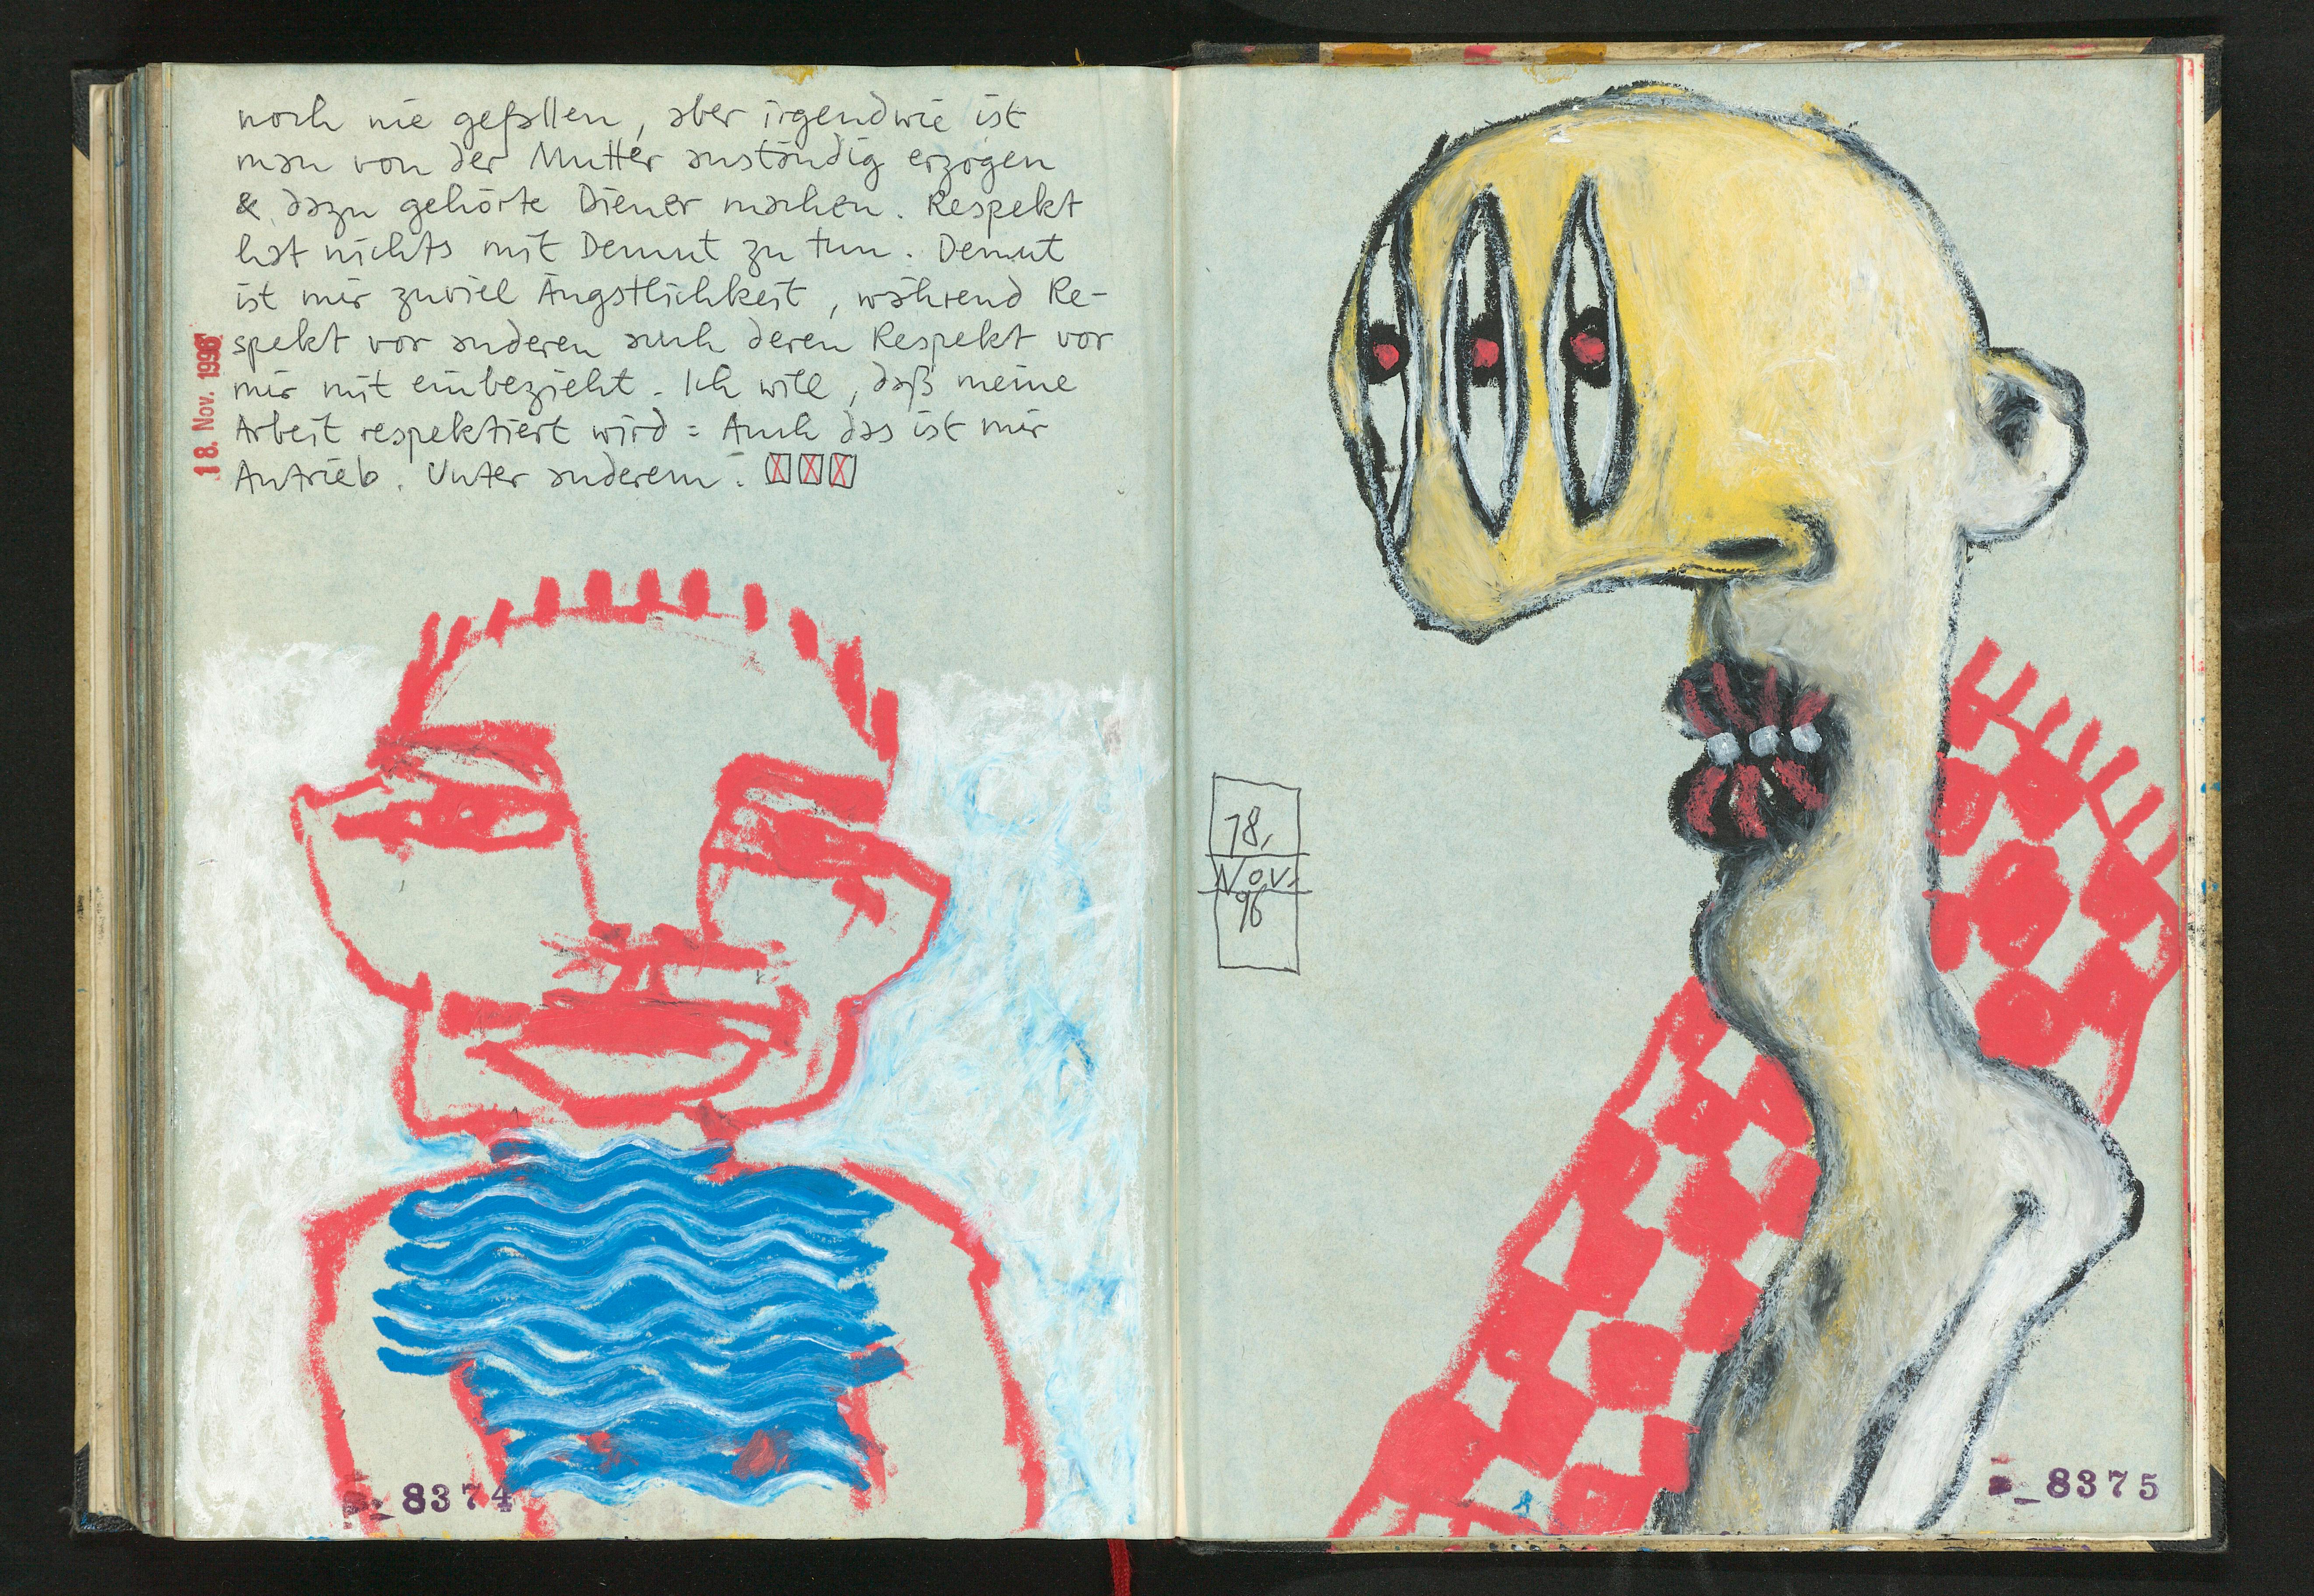 noch nie gefallen, aber irgendwie ist
man von der Mutter anständig erzogen
& dazu gehörte Diener machen. Respekt
hat nichts mit Demut zu tun. Demut
ist mir zuviel Ängstlichkeit, während Re-
spekt vor anderen auch deren Respekt vor
mir mit einbezieht. Ich will, daß meine
Arbeit respektiert wird: Auch das ist mir
Antrieb. Unter anderem.
18. Nov. 1996
8374
18.
Nov.
96
8375